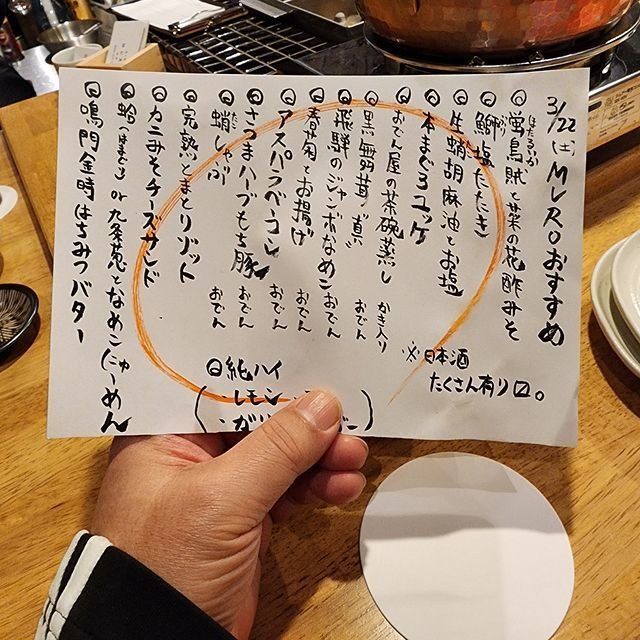 3/22(土) MURO おすすめ
蛍烏賊と菜の花酢みそ
ほたるいか
鰤塩たたき
ぶり
生蛸胡麻油とお塩
本まぐろユッケ
おでん屋の茶碗蒸し かき入り
黒舞茸"真" おでん
飛騨のジャンボなめこ おでん
春菊とお揚げ おでん
アスパラベーコン おでん
さつまハーブもち豚 おでん
蛸しゃぶ おでん
たこ
完熟とまとリゾット
カニみそチーズサンド
蛤(はまぐり) or 九条葱となめこにゅーめん
鳴門金時はちみつバター
※日本酒
たくさん有り〼。
純ハイ
レモン
ガリ